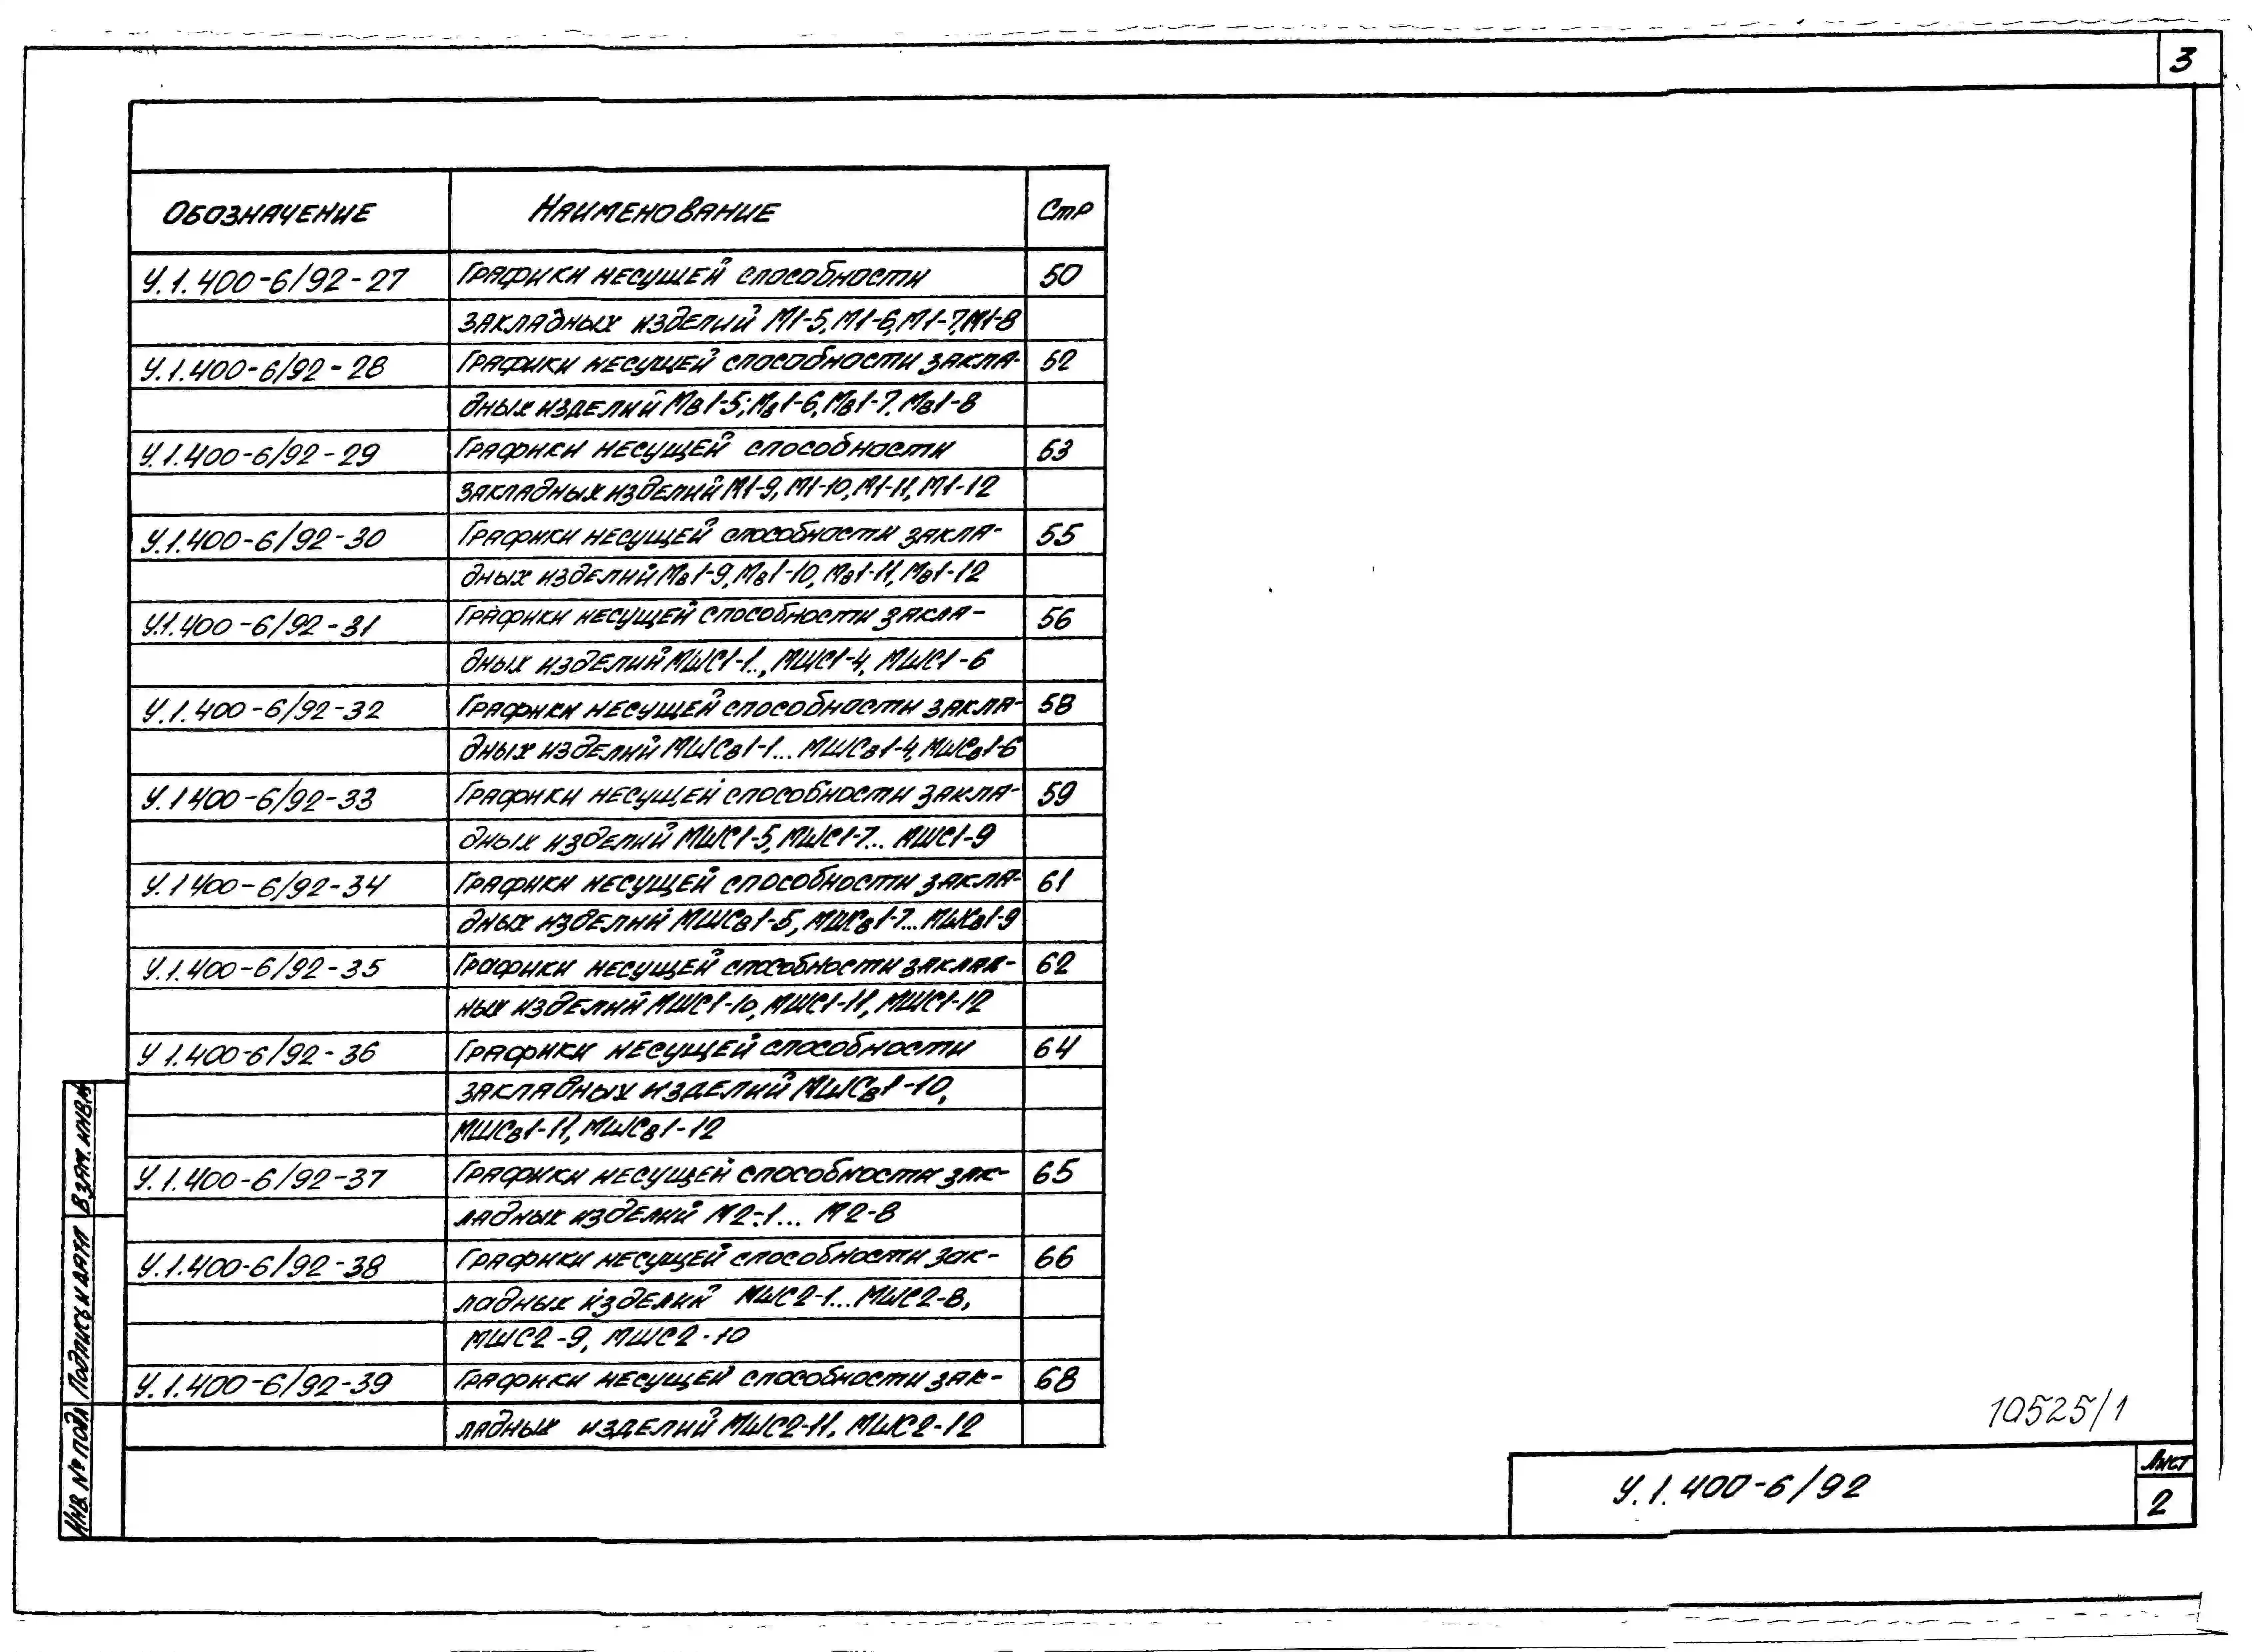 3
Обозначение Наименование Стр
У.1.400-6/92-27 Графики несущей способности 50
закладных изделий М1-5, М1-6, М1-7, М1-8
У.1.400-6/92-28 Графики несущей способности закла- 52
дных изделий Мв1-5; Мв1-6, Мв1-7, Мв1-8
У.1.400-6/92-29 Графики несущей способности 53
закладных изделий М1-9, М1-10, М1-11, М1-12
У.1.400-6/92-30 Графики несущей способности закла- 55
дных изделий Мв1-9, Мв1-10, Мв1-11, Мв1-12
У.1.400-6/92-31 Графики несущей способности закла- 56
дных изделий МШС1-1.., МШС1-4, МШС1-6
У.1.400-6/92-32 Графики несущей способности закла- 58
дных изделий МШСв1-1... МШСв1-4, МШСв1-6
У.1400-6/92-33 Графики несущей способности закла- 59
дных изделий МШС1-5, МШС1-7... МШС1-9
У.1400-6/92-34 Графики несущей способности закла- 61
дных изделий МШСв1-5, МШСв1-7... МШСв1-9
У.1.400-6/92-35 Графики несущей способности заклад- 62
ных изделий МШС1-10, МШС1-11, МШС1-12
У 1.400-6/92-36 Графики несущей способности 64
закладных изделий МШСв1-10,
МШСв1-11, МШСв1-12
У.1.400-6/92-37 Графики несущей способности зак- 65
ладных изделий М2-1... М2-8
У.1.400-6/92-38 Графики несущей способности зак- 66
ладных изделий МШС2-1... МШС2-8,
МШС2-9, МШС2-10
У.1.400-6/92-39 Графики несущей способности зак- 68
ладных изделий МШС2-11, МШС2-12
Взам. инв.№
Подпись и дата
Инв. № подл
10525/1
У.1.400-6/92
Лист
2